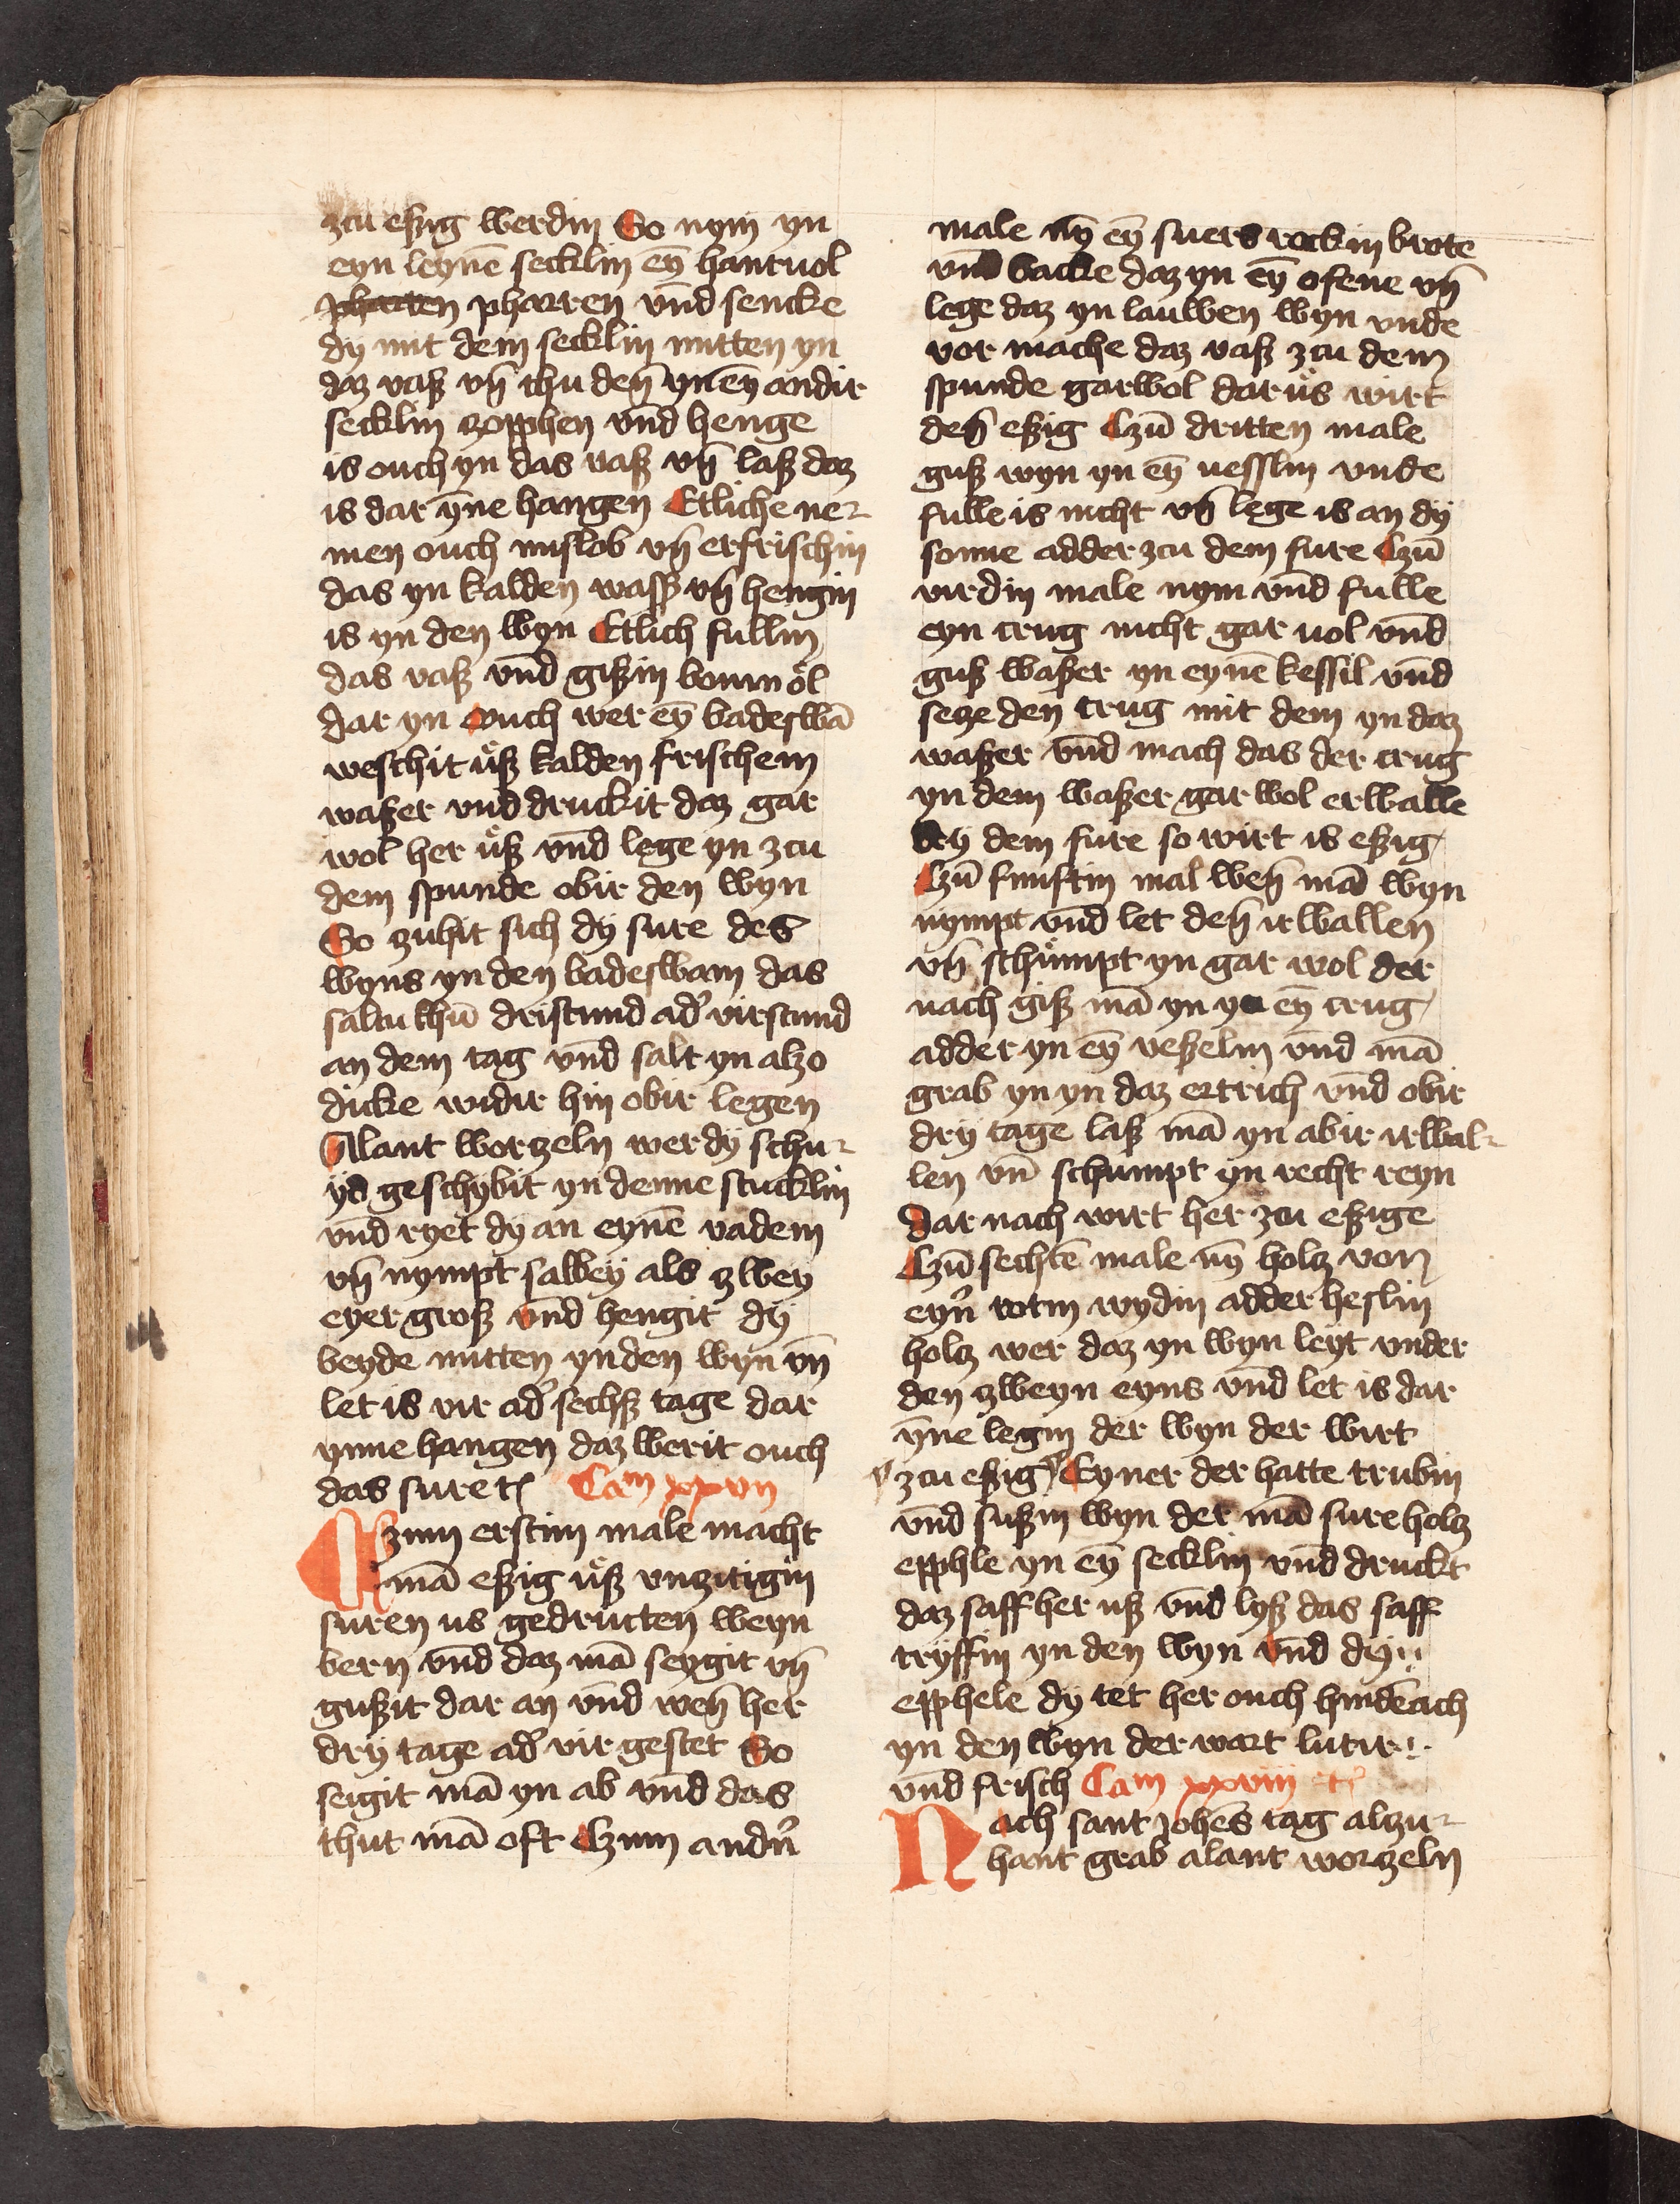 zcu eßig werdin So nym yn
eyn leynē secklin eȳ hantuol
pharren pharren vn̄d sencke
dy mit dem secklin mitten yn
daz vaß vn̄ thu den̄ yn eȳ andir
secklin zopphen vn̄d henge
is ouch yn das vaß vn̄ laß daz
is dar ȳne hangen Etliche ne-
men ouch mislob vn̄ erfrischin
das yn kalden wasß vn̄ hengin
is yn den wyn Etlich fullin
das vaß vn̄d gißin bomnöl
dar yn Ouch wer eȳ badeswā
weschit ůß kalden frischem
waßer vnd druckit daz gar
wol her ůß vn̄d lege yn zcu
dem spunde obir den wyn
So zuhit sich dy sure des
wyns yn den badeswam das
saltu thū dristund ad' virstund
an dem tag vn̄d salt yn alzo
dicke widir hin obir legen
Alant worzeln wer dy schu-
yd geschybit yn denne stucklin
vn̄d ryet dy an eynē vadem
vn̄ nympt salbey als zwey
eyer groß vn̄d hengit dy
beyde mitten yn den wyn vn̄
let is vir ad' sechß tage dar
ynne hangen daz werit ouch
das sure rc̄ Cam xxvii
Czum erstim male macht
mā eßig ůß vnzitigin
suren us gedructen weyn
bern vn̄d daz mā seygit vn̄
gußit dar an vn̄d wen̄ her
dry tage ad' vir gestet So
seigit mā yn ab vn̄d das
thut mā oft Czum andn̄
male nȳ eȳ suers rockin brote
vnd backe daz yn eȳ ofene vn̄
lege daz yn lauwen wyn vnde
vor mache daz vaß zcu dem
spunde garwol dar ůs wirt
den̄ eßig Czū dritten male
guß wyn yn eȳ uesslin vnde
fulle is nicht vn̄ lege is an dy
sonne adder zcu dem fure Czū
virdin male nym vn̄d fulle
eyn crug nicht gar uol vn̄d
guß waßer yn eynē kessil vn̄d
secze den crug mit dem yn daz
waßer vn̄d mach das der crug
yn dem waßer gar wol erwalle
bey dem fure so wirt is eßig
Czū funftin mal wen̄ mā wyn
nympt vn̄d let den̄ irwallen
vn̄ schůmpt yn gar wol der
nach giß mā yn yn eȳ crug
adder yn eȳ veßelin vn̄d mā
grab yn yn daz ertrich vn̄d obir
dry tage laß mā yn abir irwal-
len vn̄ schumpt yn recht reyn
dar nach wirt her zcu eßige
Czū sechtē male nȳ holz von
eyn̄ rotin wydin adder heslin
holz wer daz yn wyn leyt vnder
den zweyn eyns vn̄d let is dar
ȳne legin der wyn der wirt
zcu eßig Eyner der hatte trubin
vn̄d sußin wyn der mā sure holz
epphle yn eȳ secklin vn̄d druckt
daz saff her uß vn̄d lyß das saff
tryffin yn den wyn vn̄d dy
epphele dy tet her ouch hindēach
yn den wyn der wart lutir
vn̄d frisch Cam xxviii rc̄
Nach sant Johēs tag alzu-
hant grab alant worzeln